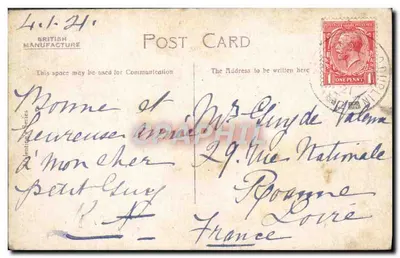 4.1.21.
BRITISH
MANUFACTURE
POST CARD
This space may be used for Communication
The Address to be written here
Bonne et
heureuse année
à mon cher
petit Guy
Mr Guy de Valena
29 rue Nationale
Roanne
Loire
France
1 ONE PENNY 1
DELCAMPE